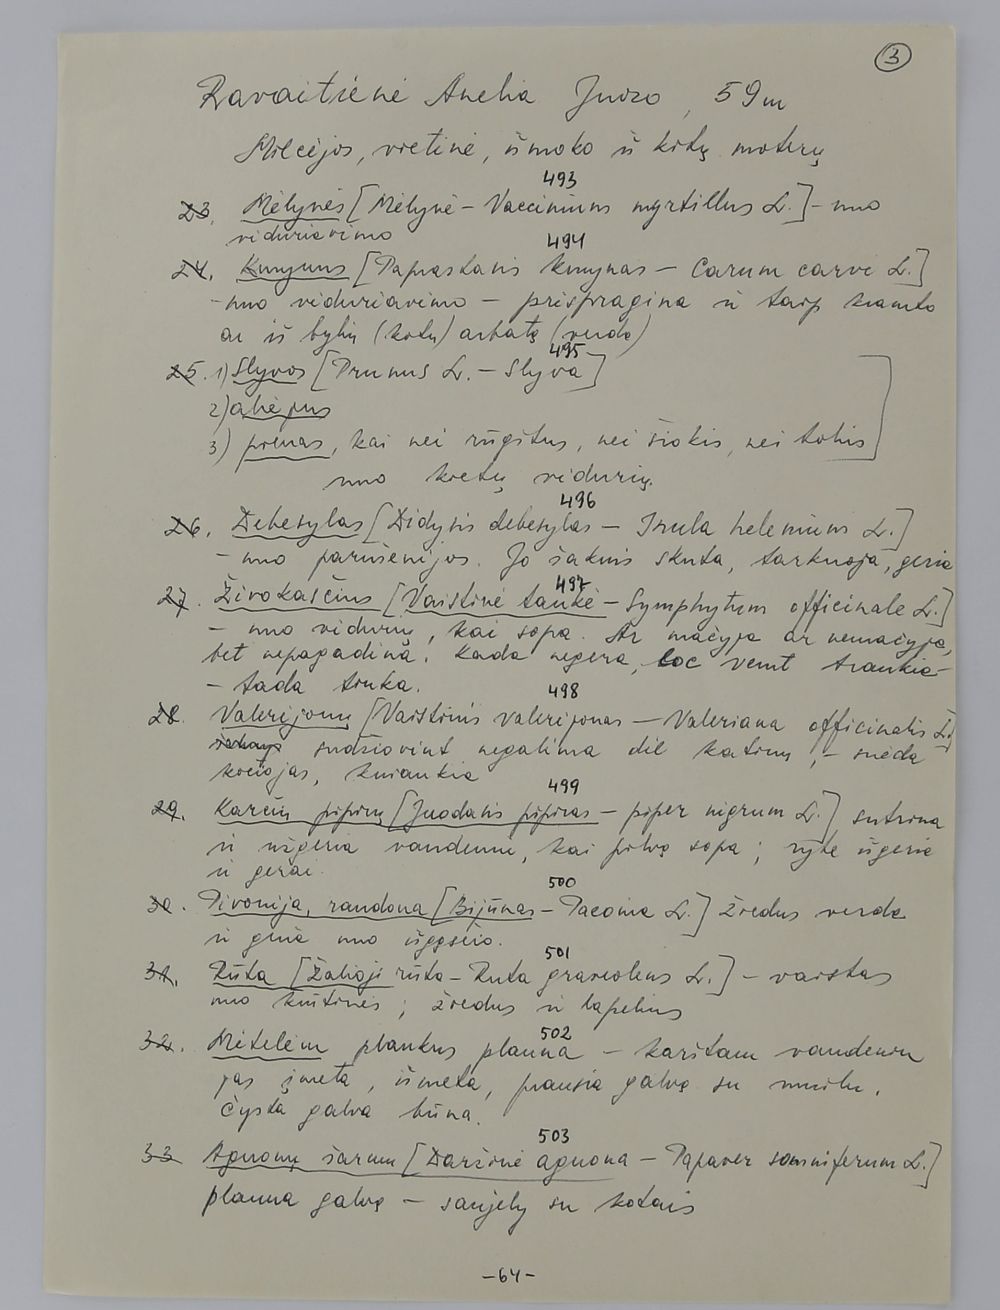 3
Ravaitienė Anelia Juozo, 59 m
Milcėjos, vietinė, išmoko iš kitų moterų
493
23. Mėlynės [Mėlynė – Vaccinium myrtillus L.] – nuo
viduriavimo
494
24. Kmynus [Paprastasis kmynas – Carum carvi L.]
– nuo viduriavimo – prispragina ir taip kramto
ar iš bylių (kotų) arbatą (verda)
495
25. 1) Slyvos [Prunus L. – Slyva]
2) aliejus
3) pienas, kai nei rūgštus, nei šiokis, nei tokis
nuo kietų vidurių.
496
26. Debesylas [Didysis debesylas – Inula helenium L.]
– nuo parušenijos. Jo šaknis skuta, tarkuoja, geria
497
27. Živokasčius [Vaistinė taukė – Symphytum officinale L.]
– nuo vidurių, kai sopa. Ar mačyja ar nemačyja,
bet nepagadina. Kada negera, loc vemt traukia –
– tada truka.
498
28. Valerijonų [Vaistinis valerijonas – Valeriana officinalis L.]
sudžiovint negalima dėl katinų, – suėda
kociojas, kniaukia
499
29. Karčių pipirų [Juodasis pipiras – piper nigrum L.] sutrina
ir užgeria vandeniu, kai pilvą sopa; ryte išgeria
ir gerai.
500
30. Pivonija, raudona [Bijūnas – Paeonia L.] žiedus verda
ir geria nuo išgąsčio.
501
31. Rūta [Žalioji rūta – Ruta graveolens L.] – vaistas
nuo krūtinės; žiedus ir lapelius
502
32. Mėtelėm plaukus plauna – karštam vandeniu
jas įmeta, išmeta, prausia galvą su muilu.
Čysta galva būna.
503
33 Aguonų šarmu [Daržinė aguona – Papaver somniferum L.]
plauna galvą – saujelų su kotais
– 64 –